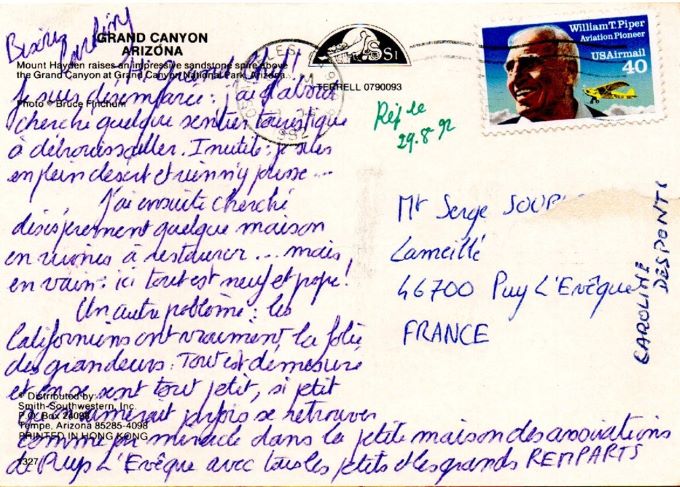 GRAND CANYON
ARIZONA
Mount Hayden raises an impressive sandstone spire above
the Grand Canyon at Grand Canyon National Park, Arizona.
Photo © Bruce Fincham
TERRELL 0790093
William T. Piper
Aviation Pioneer
USAirmail
40
Rép le
29.8.92
Je suis désemparée : j'ai d'abord
cherché quelque sentier touristique
à débroussailler. Inutile : je suis
en plein désert et rien n'y pousse...
J'ai ensuite cherché
désespérement quelque maison
en ruines à restaurer... mais,
en vain : ici tout est neuf et propre!
Un autre problème : les
Californiens ont vraiment la folie
des grandeurs : Tout est démesuré
et on se sent tout petit, si petit
aimerait parfois se retrouver
comme par miracle dans la petite maison des associations
de Puy L'Evêque avec tous les petits et les grands REMPARTS
Mr Serge
Lameillé
46700 Puy L'Evêque
FRANCE
CAROLINE
DESPONTS
© Distributed by:
Smith-Southwestern, Inc.
P.O. Box
Tempe, Arizona 85285-4098
PRINTED IN HONG KONG
1327